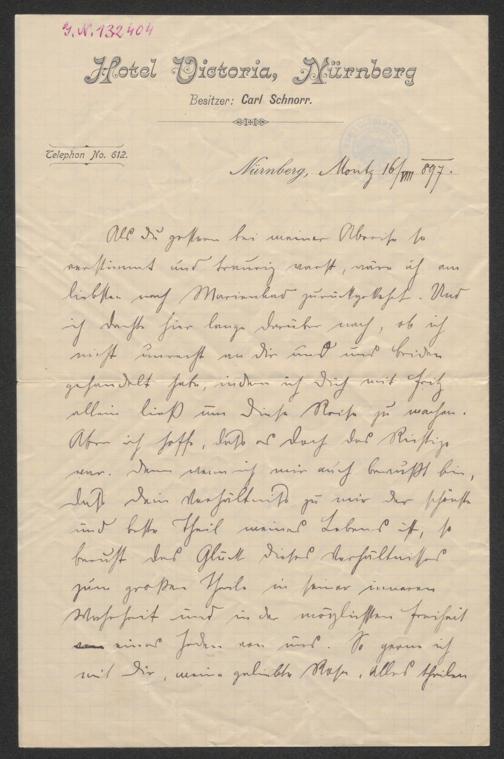 J.N. 132404
Hotel Victoria, Nürnberg
Besitzer: Carl Schnorr.
Telephon No. 612.
Nürnberg, Montg 16/VIII 897.
Als du gestern bei meiner Abreise so
verstimmt und traurig warst, wäre ich am
liebsten nach Marienbad zurückgekehrt. Und
ich dachte hier lange darüber nach, ob ich
nicht unrecht an dir und uns beiden
gehandelt habe, indem ich dich mit Fritz
allein ließ um diese Reise zu machen.
Aber ich hoffe, daß es doch das Richtige
war. Denn wenn ich mir auch bewußt bin,
daß dein Verhältniß zu mir der schönste
und beste Theil meines Lebens ist, so
beruht das Glück dieses Verhältnisses
zum großen Theile in seiner inneren
Wahrheit und in der möglichsten Freiheit
eines Jeden von uns. So gerne ich
mit Dir, meine geliebte Rosa, alles theilen